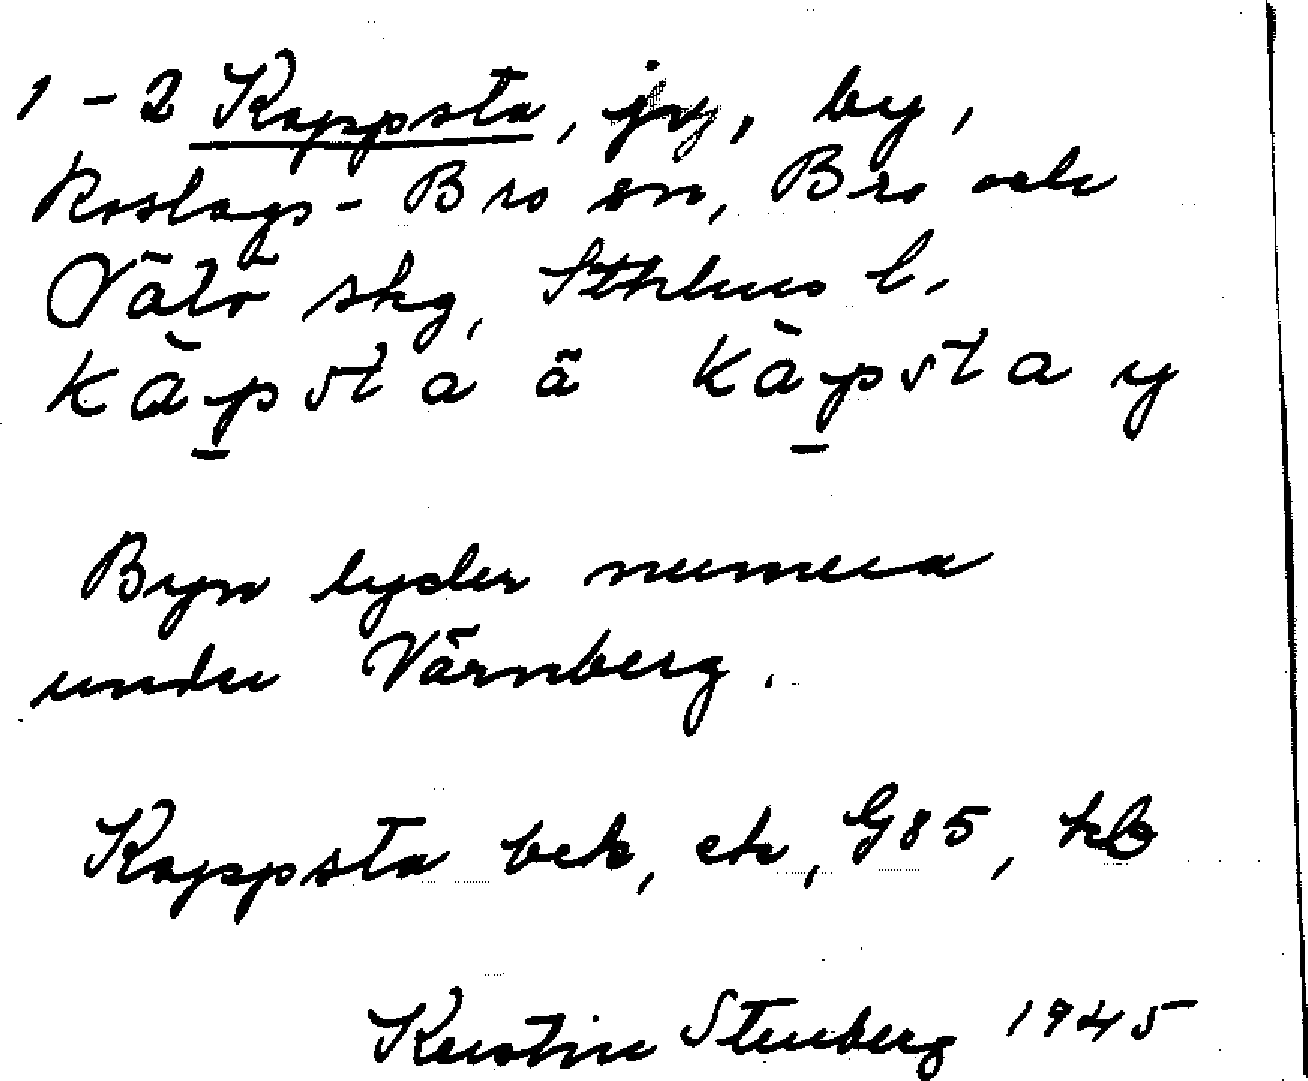 1-2 Kappsta, jv, by,
Roslags-Bro sn, Bro och
Vätö skg, Sthlms l.
kàpsta ä kàpsta y
Byn lyder numera
under Värnberg.
Kappsta bek, ek, G85, kb
Kerstin Stenberg 1945